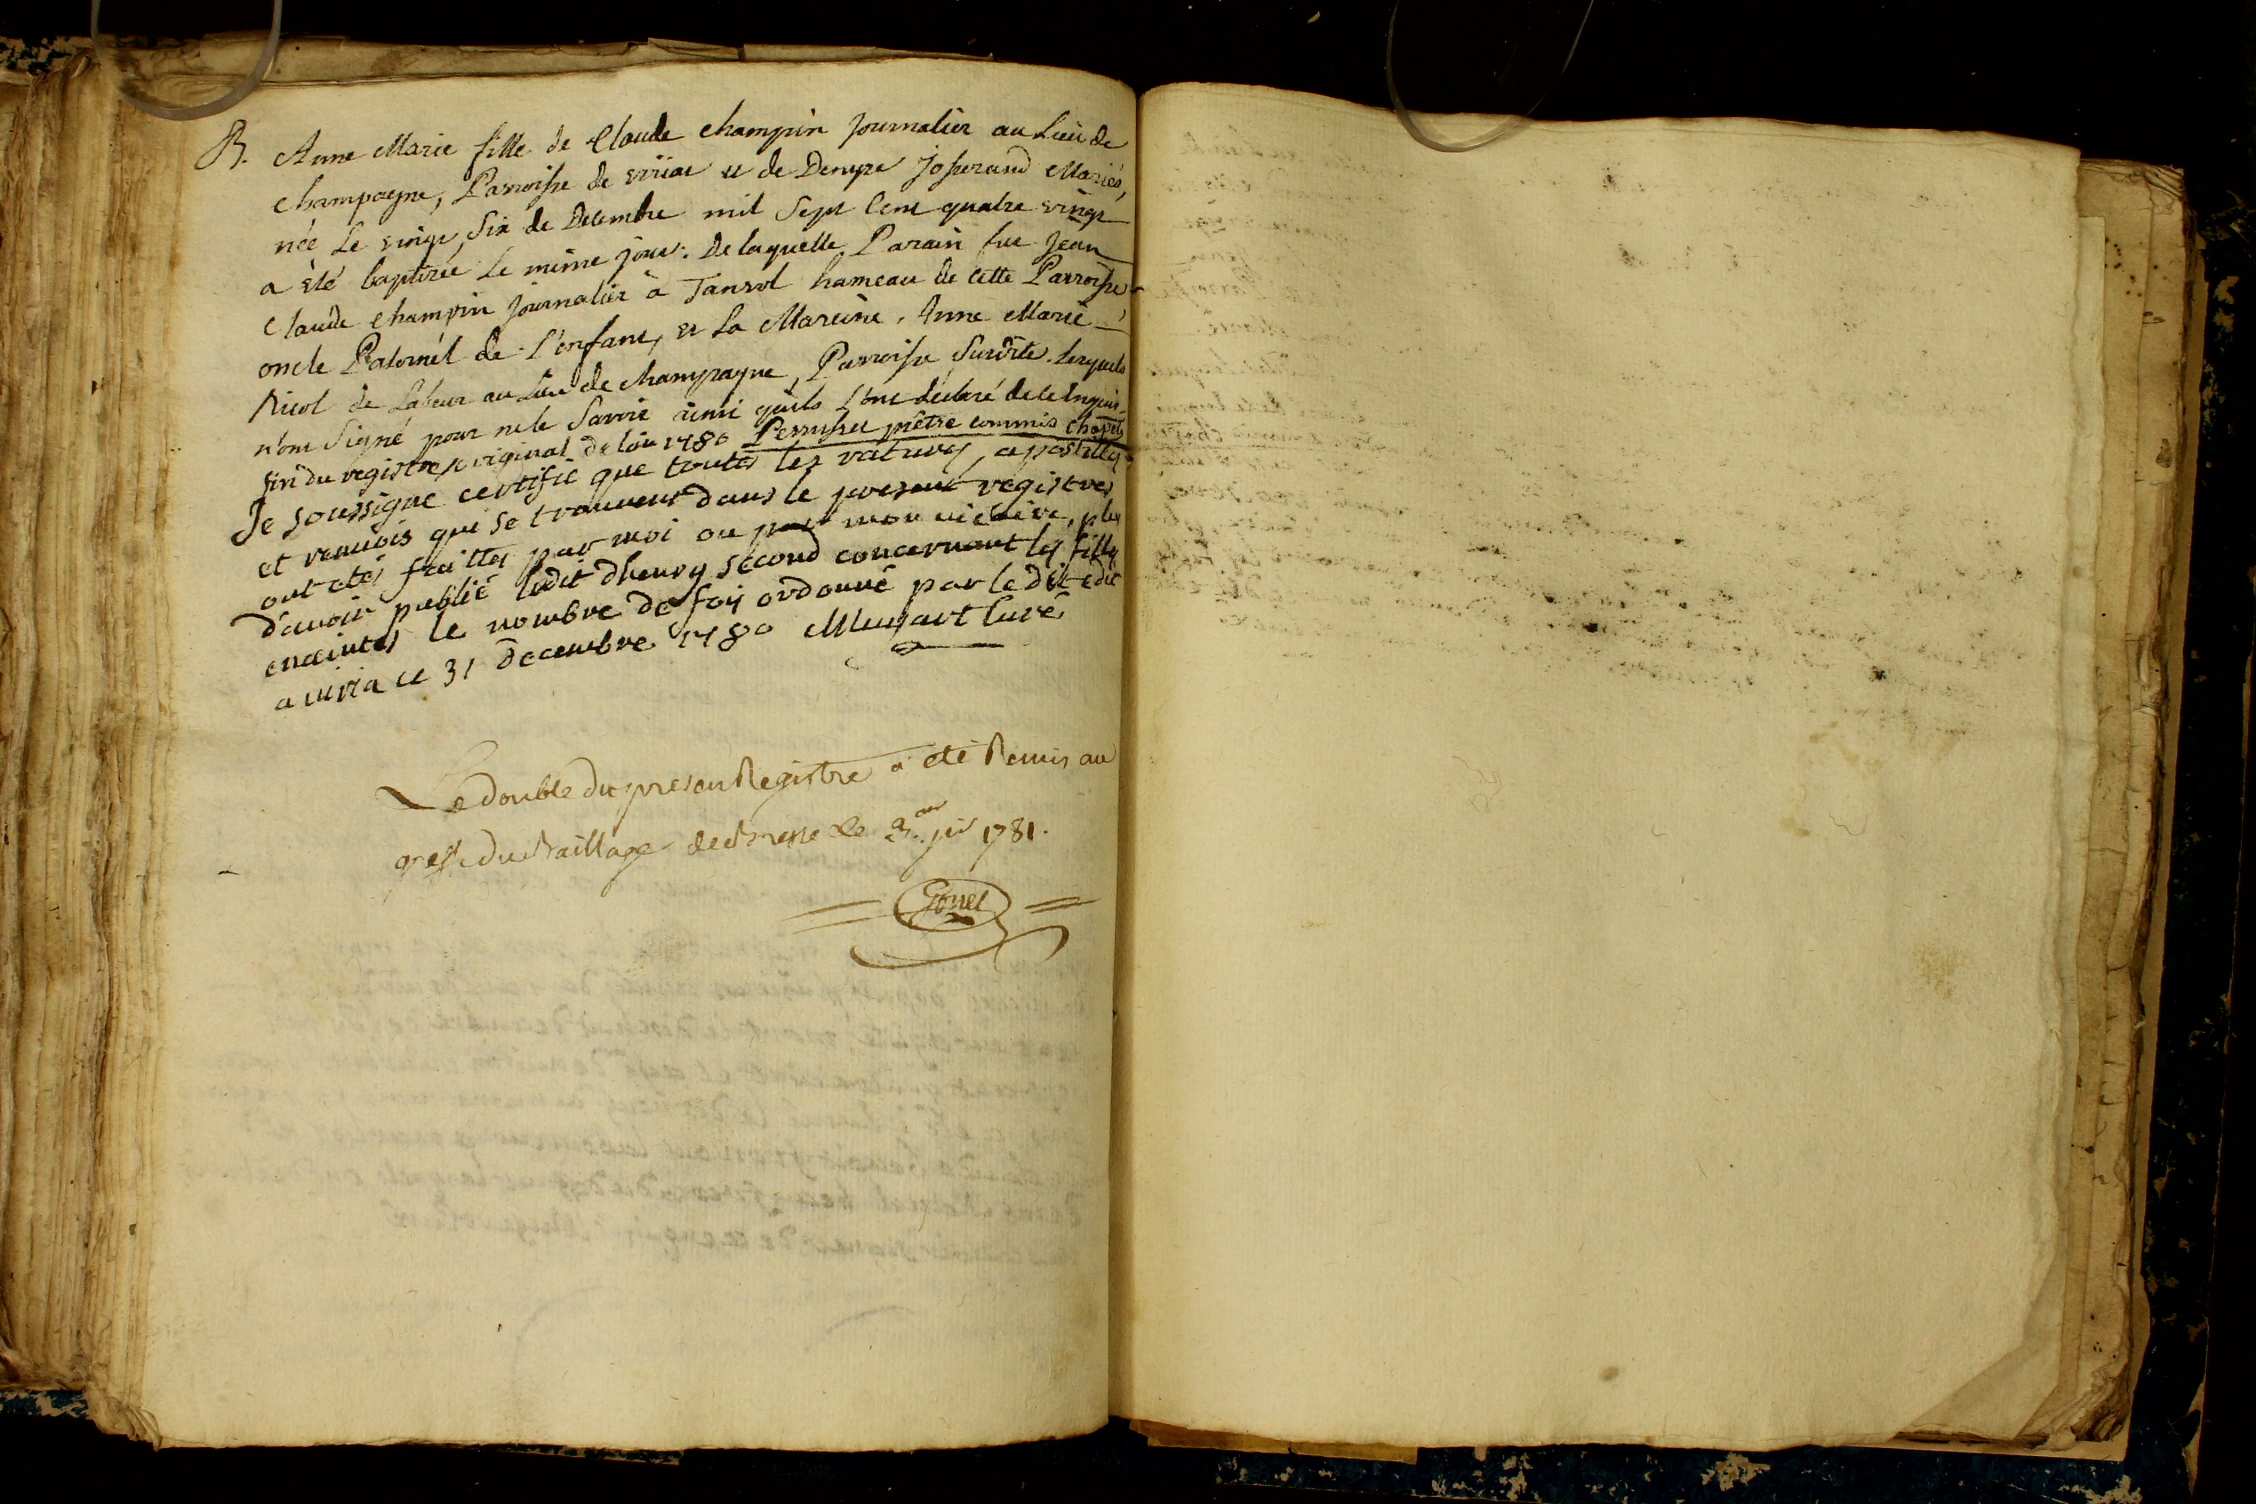 B. Anne Marie fille de Claude champin journalier au Lieu de
champagne, Parroisse de viriat et de Denyse Josserand Mariés,
née Le vingt six de Decembre mil Sept Cent quatre vingt
a été baptisée Le même jour. De laquelle Parain fut Jean
Claude champin journalier à Tanvol hameau de cette Parroisse
oncle Paternél de L'enfant, et La Mareine, Anne Marie
Nicol de Labeur au Lieu de champagne, Parroisse Surdite. Lesquels
n'ont Signé pour ne le Savoir ainsi qu'ils L'ont déclaré de ce Enquis.
fin du registre original de l'an 1780 Perruset prêtre commis
Je soussigné certifie que toutes les ratures, apostilles
et renvois qui se trouvent dans le present registres
ont etés faittes par moi ou par mon vicaire, plus
d'avoir publié ledit dhenry second concernant les filles
enceintes le nombre de fois ordonné par le dit edit
a viria ce 31 decembre 1780 curé
Le double du presen Registre a eté Remis au
greffe du Baillage de Bresse le 1781.
Gonet